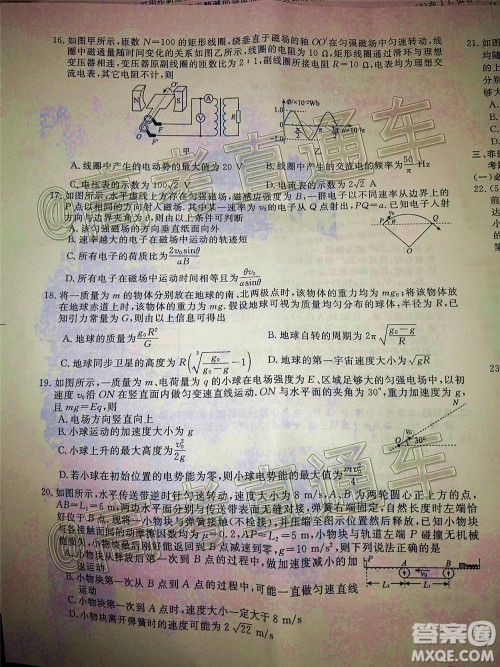 16. 如图甲所示，匝数 N=100 的矩形线圈，绕垂直于磁场的轴 OO′在匀强磁场中匀速转动，线
圈中磁通量随时间变化的关系如图乙所示，线圈的电阻为 10 Ω，矩形线圈与理想
变压器相连，变压器原副线圈的匝数比为 2∶1，副线圈所接电阻 R=10 Ω，电表均为理想交
流电表，其它电阻不计，则
N
S
O′
O
V
A
R
甲
Φ/×10⁻²Wb
1.0
0
-1.0
π
2π
t/×10⁻²s
乙
A. 线圈中产生的电动势的最大值为 20 V
B. 线圈中产生的交流电的频率为 50/π Hz
C. 电压表的示数为 100√2 V
D. 电流表的示数为 2√2 A
17. 如图所示，水平虚线上方存在匀强磁场，磁感应强度为 B，一群电子以不同速率从边界上的
P 点以相同的方向射入磁场。其中某一速率为 v₀ 的电子从 Q 点射出，PQ=a。已知电子入射
方向与边界夹角为 θ，则由以上条件可判断
v₀
θ
P
Q
A. 该匀强磁场的方向垂直纸面向外
B. 速率越大的电子在磁场中运动的轨迹短
C. 所有电子的荷质比为 2v₀sinθ/aB
D. 所有电子在磁场中运动时间相等且为 θv₀/a sinθ
18. 将一质量为 m 的物体分别放在地球的南、北两极点时，该物体的重力均为 mg₀；将该物体放
在地球赤道上时，该物体的重力为 mg。假设地球可视为质量均匀分布的球体，半径为 R，已
知引力常量为 G，则由以上信息可得出
A. 地球的质量为 g₀R²/G
B. 地球自转的周期为 2π√((g₀-g)/R)
C. 地球同步卫星的高度为 R(³√(g₀/(g₀-g))-1)
D. 地球的第一宇宙速度大小为 √gR
19. 如图所示，一质量为 m、电荷量为 q 的小球在电场强度为 E、区域足够大的匀强电场中，以初
速度 v₀ 沿 ON 在竖直面内做匀变速直线运动。ON 与水平面的夹角为 30°，重力加速度为 g，
且 mg=Eq，则
N
v₀
O
30°
A. 电场方向竖直向上
B. 小球运动的加速度大小为 g
C. 小球上升的最大高度为 v₀²/2g
D. 若小球在初始位置的电势能为零，则小球电势能的最大值为 mv₀²/4
20. 如图所示，水平传送带逆时针匀速转动，速度大小为 8 m/s，A、B 为两轮圆心正上方的点，
AB=L₁=6 m，两边水平面分别与传送带表面无缝对接，弹簧右端固定，自然长度时左端恰好
位于 B 点，现将一小物块与弹簧接触(不栓接)，并压缩至图示位置然后释放，已知小物块
与各接触面间的动摩擦因数均为 μ=0.2，AP=L₂=5 m，小物块与轨道左端 P 碰撞无机械
能损失，小物块最后刚好能返回到 B 点减速到零，g=10 m/s²，则下列说法正确的是
P
A
B
v₀
L₂
L₁
A. 小物块从释放后第一次到 B 点的过程中，做加速度减小的加
速运动
B. 小物块第一次从 B 点到 A 点的过程中，可能一直做匀速直线
运动
C. 小物块第一次到 A 点时，速度大小一定大于 8 m/s
D. 小物块离开弹簧时的速度可能为 2√22 m/s
高考直通车
高考直通车
答案圈
MXQE.COM
21.
三、
22.
23